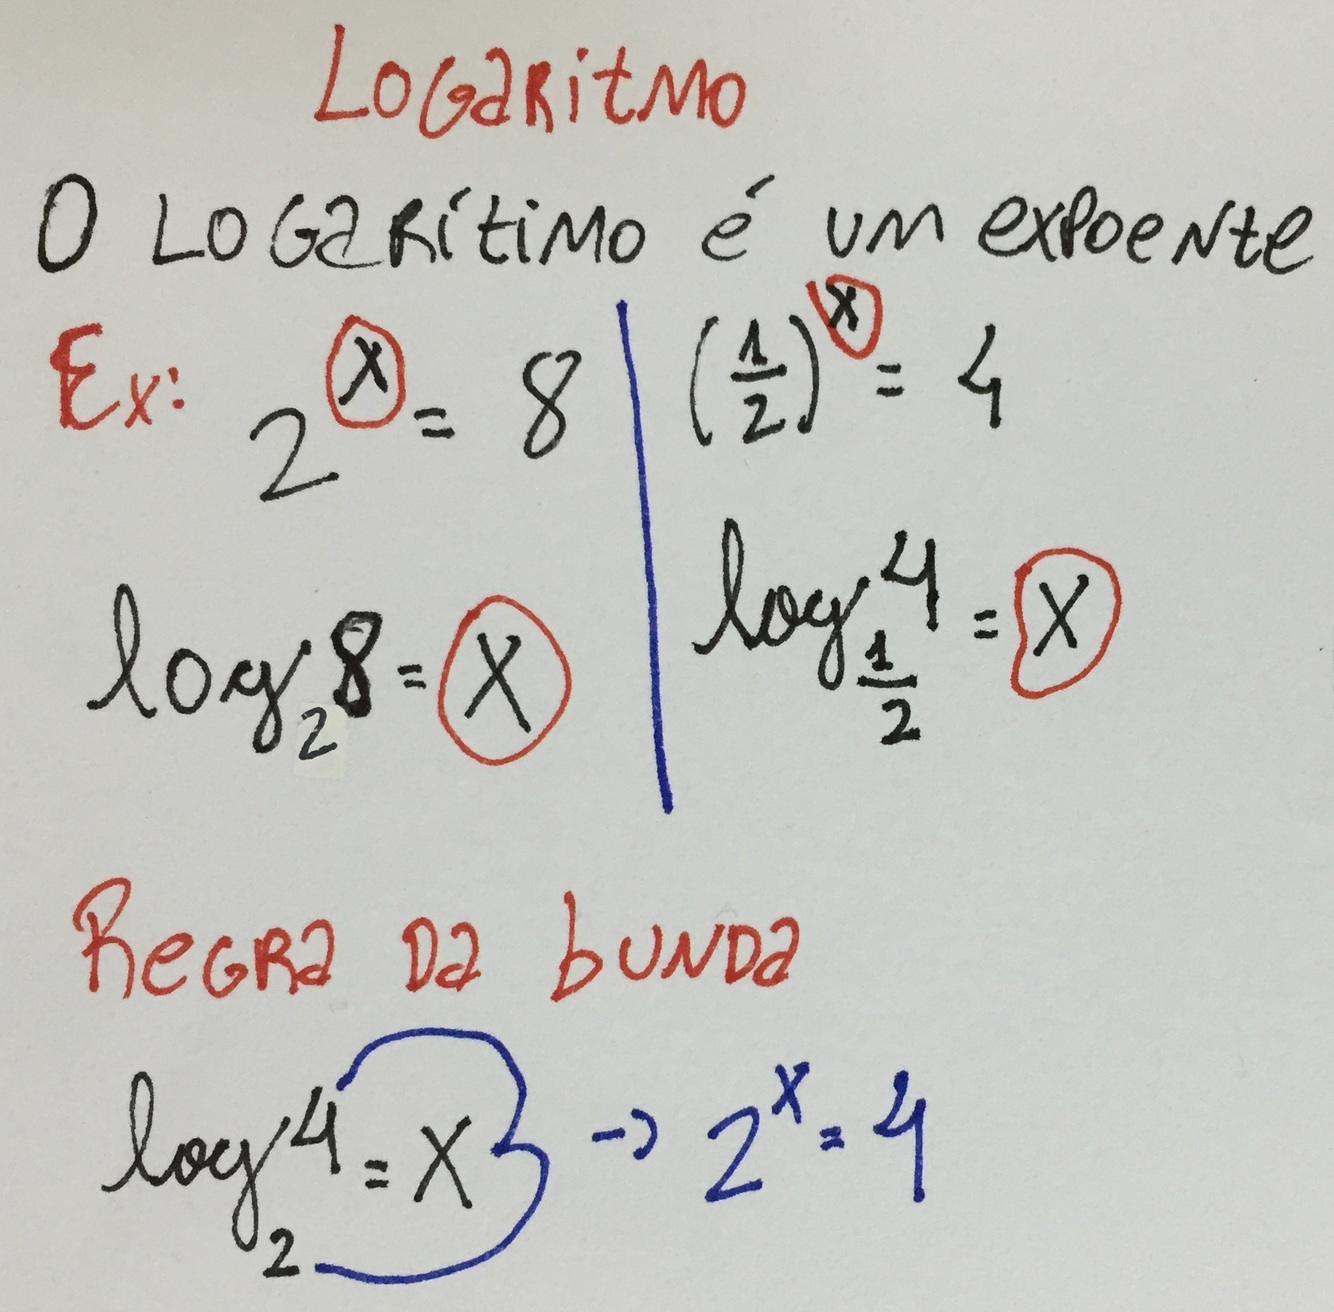 Logaritmo
O Logarítimo é um expoente
Ex: 2^x = 8
log₂ 8 = x
(1/2)^x = 4
log_(1/2) 4 = x
Regra da bunda
log₂ 4 = x → 2^x = 4